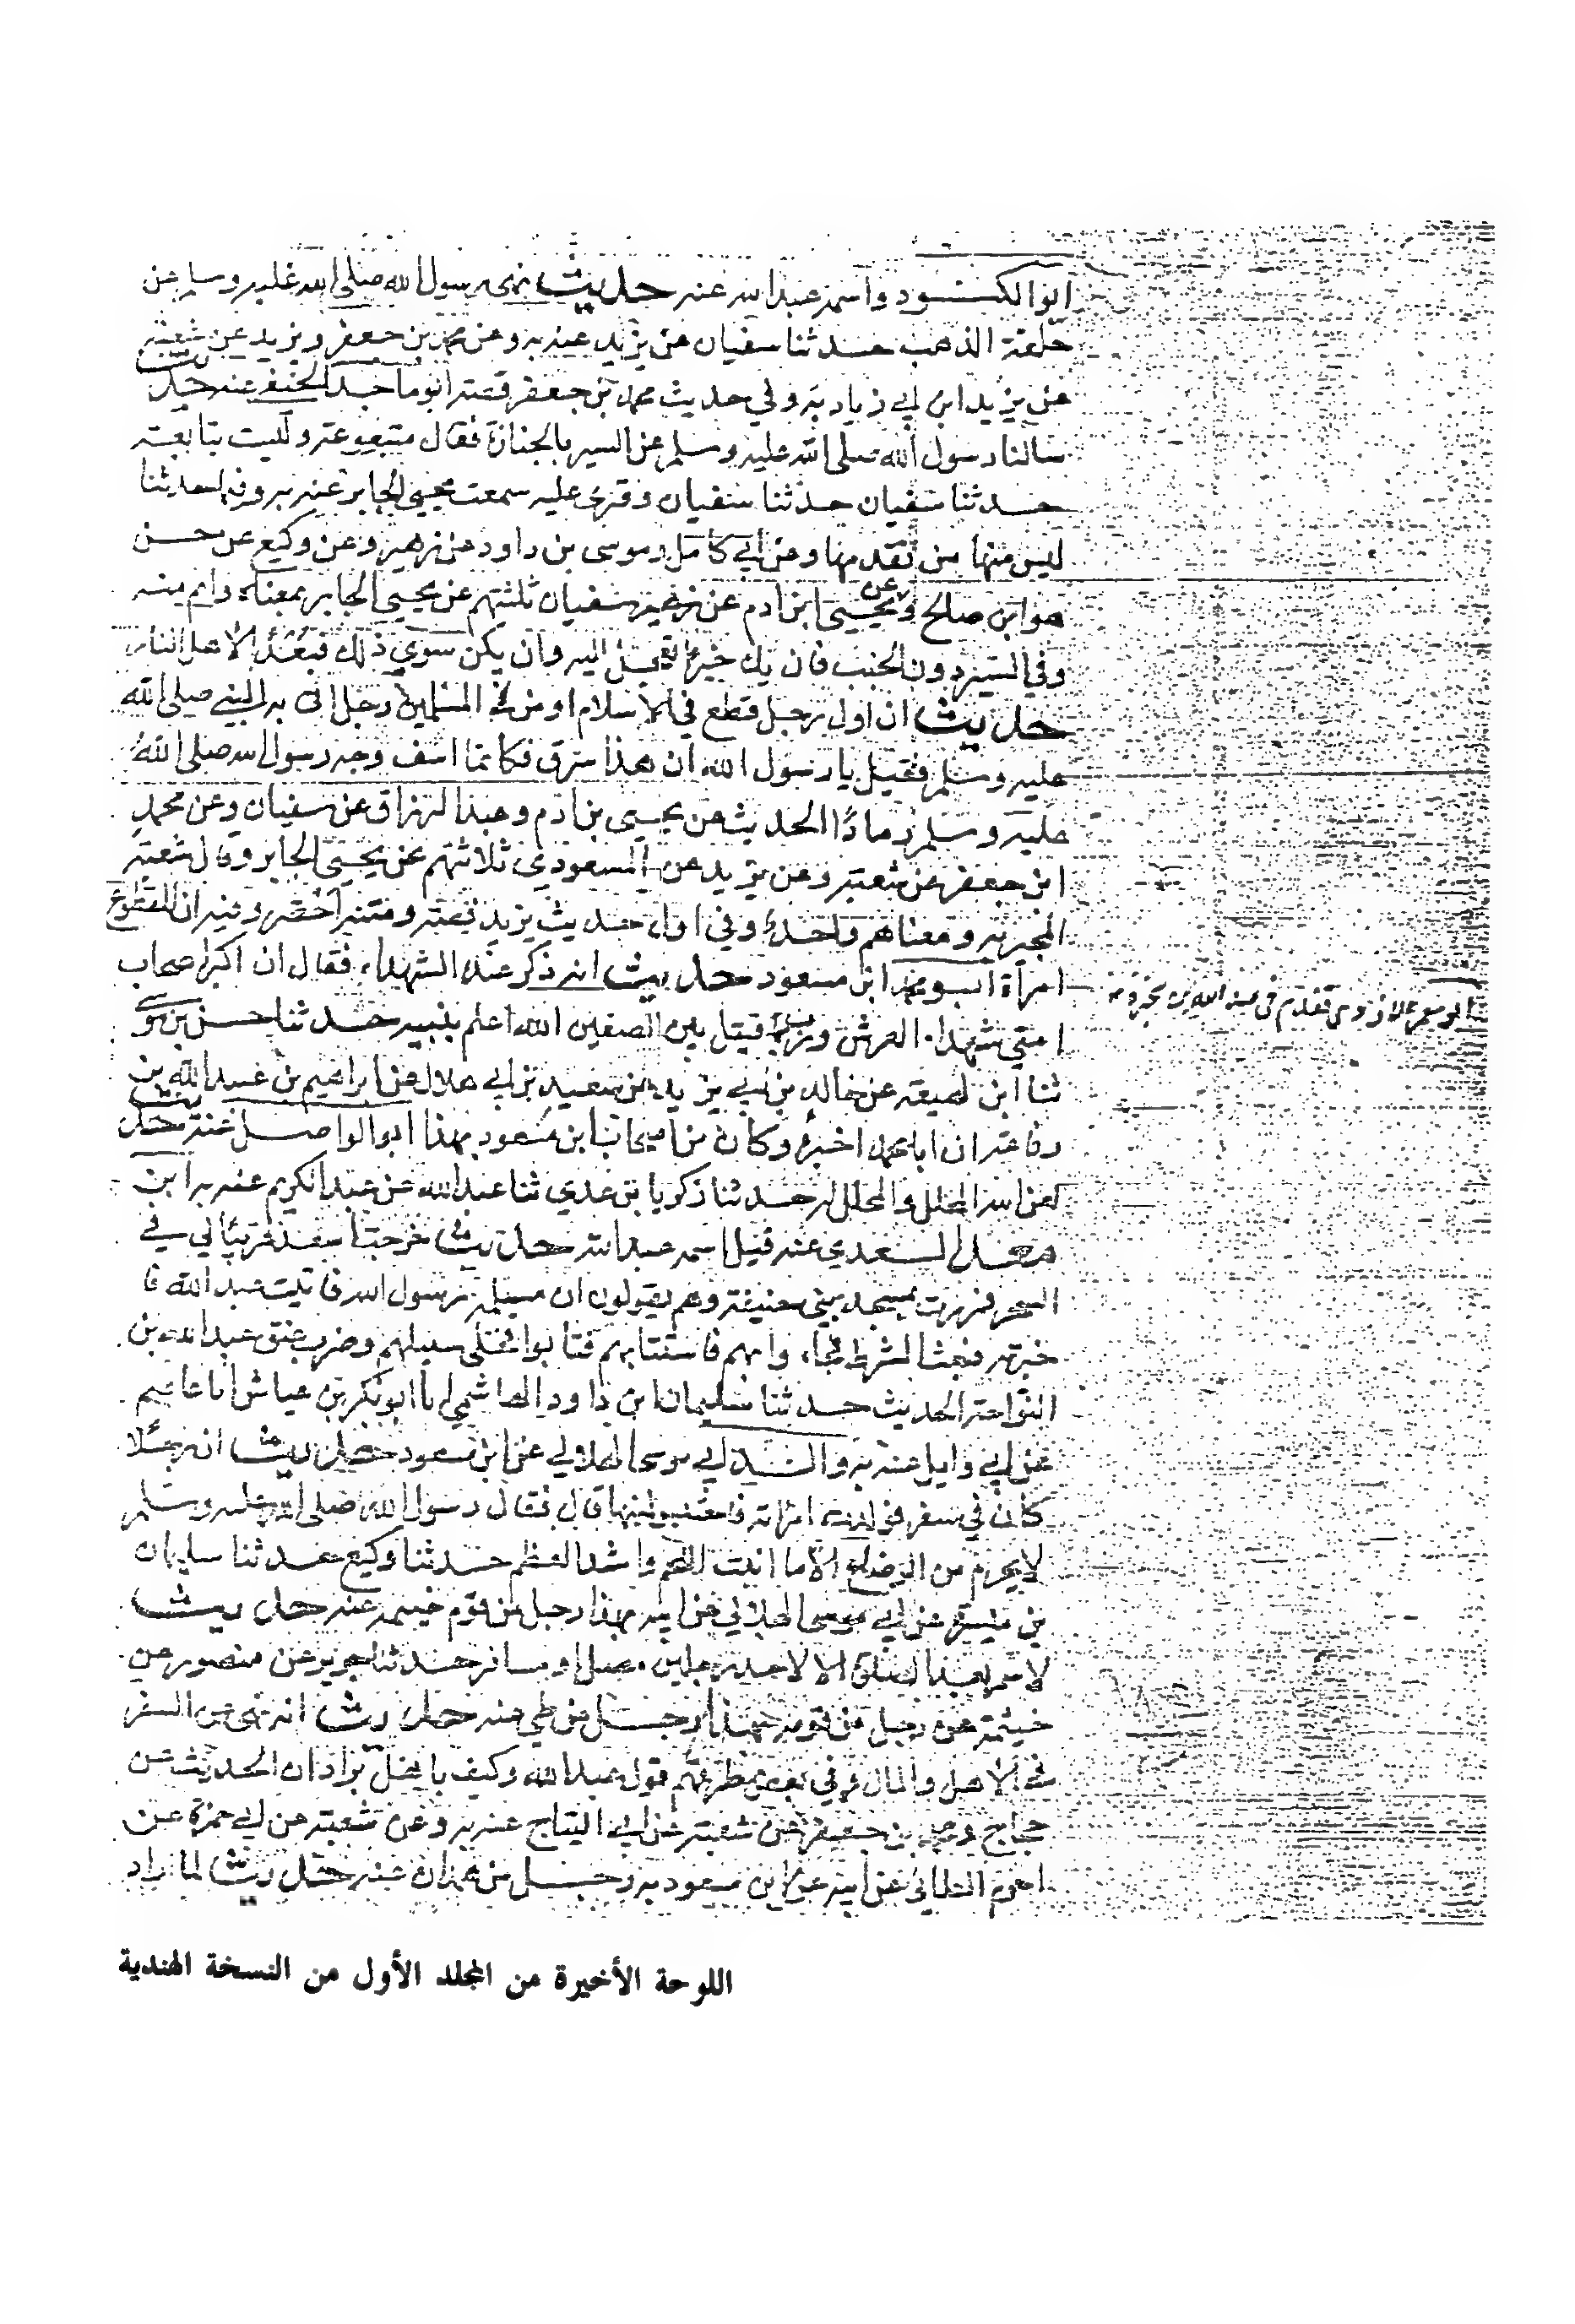 ابوالكنود واسمه عبدالله عنه حديث نهى رسول الله صلى الله عليه وسلم عن
حلقة الذهب حدثنا سفيان عن يزيد عنه به وعن محمد بن جعفر ويزيد عن شعبة
عن يزيد ابن ابي زياد به وفي حديث محمد بن جعفر قصة ابو ماجد الحنفي عنه حديث
سالنا رسول الله صلى الله عليه وسلم عن السير بالجنازة فقال متبوعة وليست بتابعة
حدثنا سفيان حدثنا سفيان وقرئ عليه سمعت يحيى الجابر عنه به
ليس منها من تقدمها وعن ابي كامل وموسى بن داود عن زهير وعن وكيع عن حسن
هو ابن صالح وعن يحيى ابن ادم عن زهير سفيان ثلثتهم عن يحيى الجابر بمعناه واتم منه
وفي السير دون الخبب فان يك خيرا تعجل اليه وان يكن سوى ذلك فبعدا لاهل النار
حديث ان اول رجل قطع في الاسلام او من المسلمين رجل اتى به النبي صلى الله
عليه وسلم فقيل يا رسول الله ان هذا سرق فكانما اسف وجه رسول الله صلى الله
عليه وسلم رمادا الحديث عن يحيى بن ادم وعبد الرزاق عن سفيان وعن محمد
ابن جعفر عن شعبة وعن يزيد عن المسعودي ثلاثتهم عن يحيى الجابر وقال شعبة
المجبر به ومعناهم واحد وفي اول حديث يزيد قصة ومتنه اخصر وفيه ان المقطوع
امراة ابو محمد ابن مسعود حديث انه ذكر عنده الشهداء فقال ان اكثر اصحاب
ابو معمر الازدي تقدم في عبد الله بن سخبرة
امتي شهداء الفرش ورب قتيل بين الصفين الله اعلم بنيته حدثنا حسن بن موسى
ثنا ابن لهيعة عن خالد بن ابي يزيد عن سعيد بن ابي هلال عن ابراهيم بن عبيد الله بن
رفاعة ان ابا محمد اخبره وكان من اصحاب ابن مسعود بهذا ابو الواصل عنه حديث
لعن الله المحلل والمحلل له حدثنا زكريا بن عدي ثنا عبد الله عن عبد الكريم عنه به ابن
معيز السعدي عنه قيل اسمه عبدالله حديث خرجت اسقد فرسا لي في
السحر فمررت بمسجد بني حنيفة وهم يقولون ان مسيلمة رسول الله فاتيت عبد الله فا
خبرته فبعث الشرط فجاءوا بهم فاستتابهم فتابوا فخلى سبيلهم وضرب عنق عبد الله بن
النواحة الحديث حدثنا سليمان ابن داود الهاشمي انا ابوبكر بن عياش انا عاصم
عن ابي وايل عنه به والد ابي موسى الهلالي عن ابن مسعود حديث ان رجلا
كان في سفر فولدت امراته فاحتبس لبنها قال فقال رسول الله صلى الله عليه وسلم
لا يحرم من الرضاع الا ما انبت اللحم وانشد العظم حدثنا وكيع حدثنا سليمان
بن المغيرة عن ابي موسى الهلالي عن ابيه بهذا رجل من قوم خيثمة عنه حديث
لا سمر بعد الصلاة الا لاحد رجلين مصل او مسافر حدثنا جرير عن منصور عن
خيثمة عن رجل من قومه بهذا رجل من طي عنه حديث انه نهى عن التبقر
في الاهل والمال وفي بعض طرقهم قول عبد الله وكيف باهل براذان الحديث عن
حجاج ومحمد بن جعفر عن شعبة عن ابي التياح عنه به وعن شعبة عن ابي حمزة عن
اخرم الطائي عن ابيه عن ابن مسعود به رجل من همدان عنه حديث لما اراد
اللوحة الأخيرة من المجلد الأول من النسخة الهندية